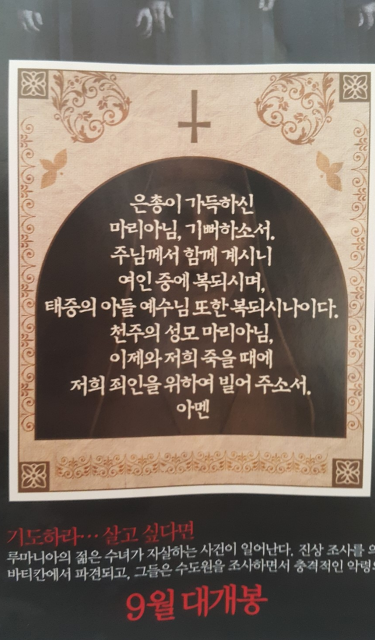 은총이 가득하신
마리아님, 기뻐하소서.
주님께서 함께 계시니
여인 중에 복되시며,
태중의 아들 예수님 또한 복되시나이다.
천주의 성모 마리아님,
이제와 저희 죽을 때에
저희 죄인을 위하여 빌어 주소서.
아멘
기도하라… 살고 싶다면
루마니아의 젊은 수녀가 자살하는 사건이 일어난다. 진상 조사를
바티칸에서 파견되고, 그들은 수도원을 조사하면서 충격적인
9월 대개봉